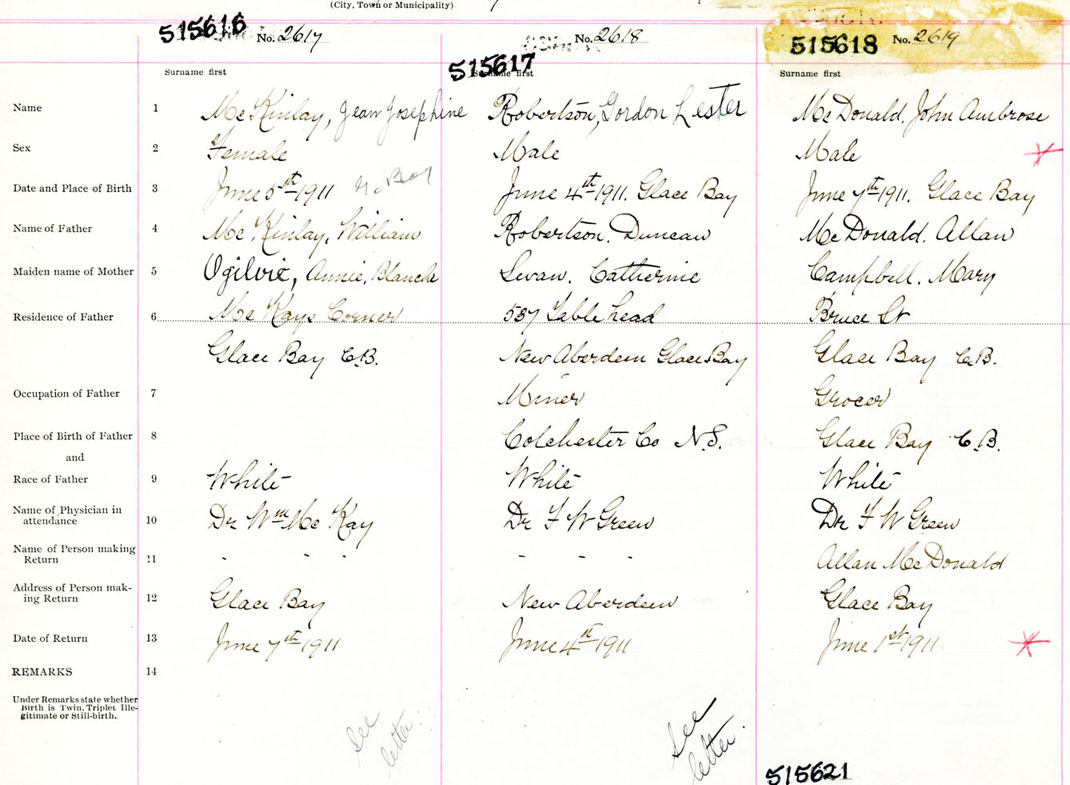 (City, Town or Municipality)
515616 No. 2617 No. 2618 515618 No. 2619
515617
Surname first Surname first Surname first
Name 1 McKinlay, Jean Josephine Robertson, Gordon Lester McDonald, John Ambrose
Sex 2 Female Male Male
Date and Place of Birth 3 June 5th 1911 G. Bay June 4th 1911. Glace Bay June 7th 1911. Glace Bay
Name of Father 4 McKinlay, William Robertson. Duncan McDonald. Allan
Maiden name of Mother 5 Ogilvie, Annie, Blanche Swan. Catherine Campbell. Mary
Residence of Father 6 McKays Corner 537 Tablehead Bruce St
Glace Bay C.B. New Aberdeen Glace Bay Glace Bay C.B.
Occupation of Father 7 Miner Grocer
Place of Birth of Father 8 Colchester Co N.S. Glace Bay C.B.
and
Race of Father 9 White White White
Name of Physician in
attendance 10 Dr Wm McKay Dr F W Green Dr F W Green
Name of Person making
Return 11 - - - - - - Allan McDonald
Address of Person mak-
ing Return 12 Glace Bay New Aberdeen Glace Bay
Date of Return 13 June 7th 1911 June 4th 1911 June 1st 1911
REMARKS 14
Under Remarks state whether
Birth is Twin, Triplet Ille-
gitimate or Still-birth.
see
letter.
see
letter.
515621